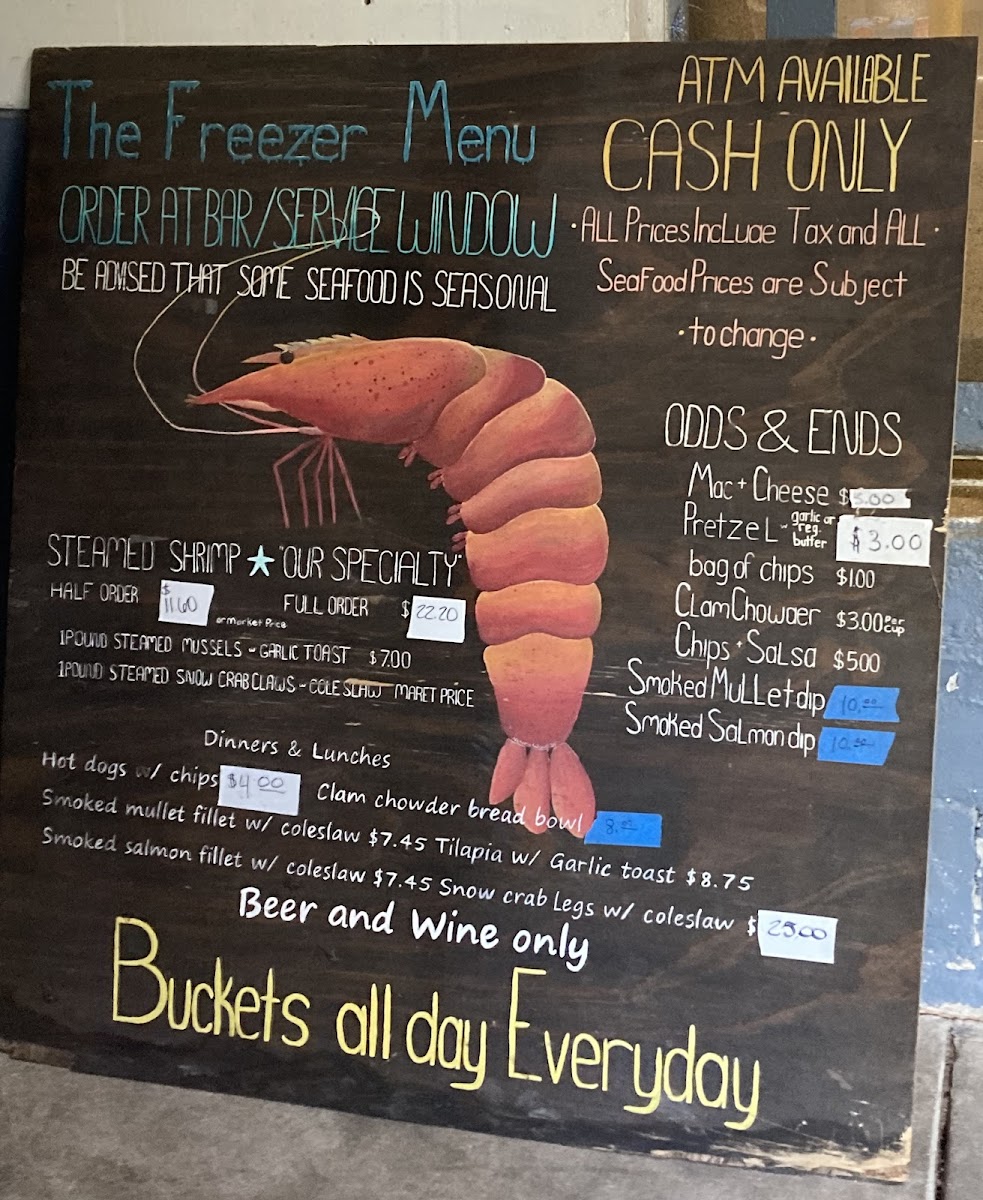 The Freezer Menu
ORDER AT BAR/SERVICE WINDOW
BE ADVISED THAT SOME SEAFOOD IS SEASONAL
ATM AVAILABLE
CASH ONLY
·ALL Prices Include Tax and ALL·
SeaFood Prices are Subject
·to change·
ODDS & ENDS
Mac + Cheese $5.00
Pretzel - garlic or reg. butter $3.00
bag of chips $1.00
Clam Chowder $3.00 per cup
Chips + Salsa $5.00
Smoked Mullet dip 10.00
Smoked Salmon dip 10.00
STEAMED SHRIMP ★ "OUR SPECIALTY"
HALF ORDER $11.60 or Market Price FULL ORDER $22.20
1 POUND STEAMED MUSSELS - GARLIC TOAST $7.00
1 POUND STEAMED SNOW CRAB CLAWS - COLE SLAW MARET PRICE
Dinners & Lunches
Hot dogs w/ chips $4.00 Clam chowder bread bowl 8.00
Smoked mullet fillet w/ coleslaw $7.45 Tilapia w/ Garlic toast $8.75
Smoked salmon fillet w/ coleslaw $7.45 Snow crab Legs w/ coleslaw $25.00
Beer and Wine only
Buckets all day Everyday